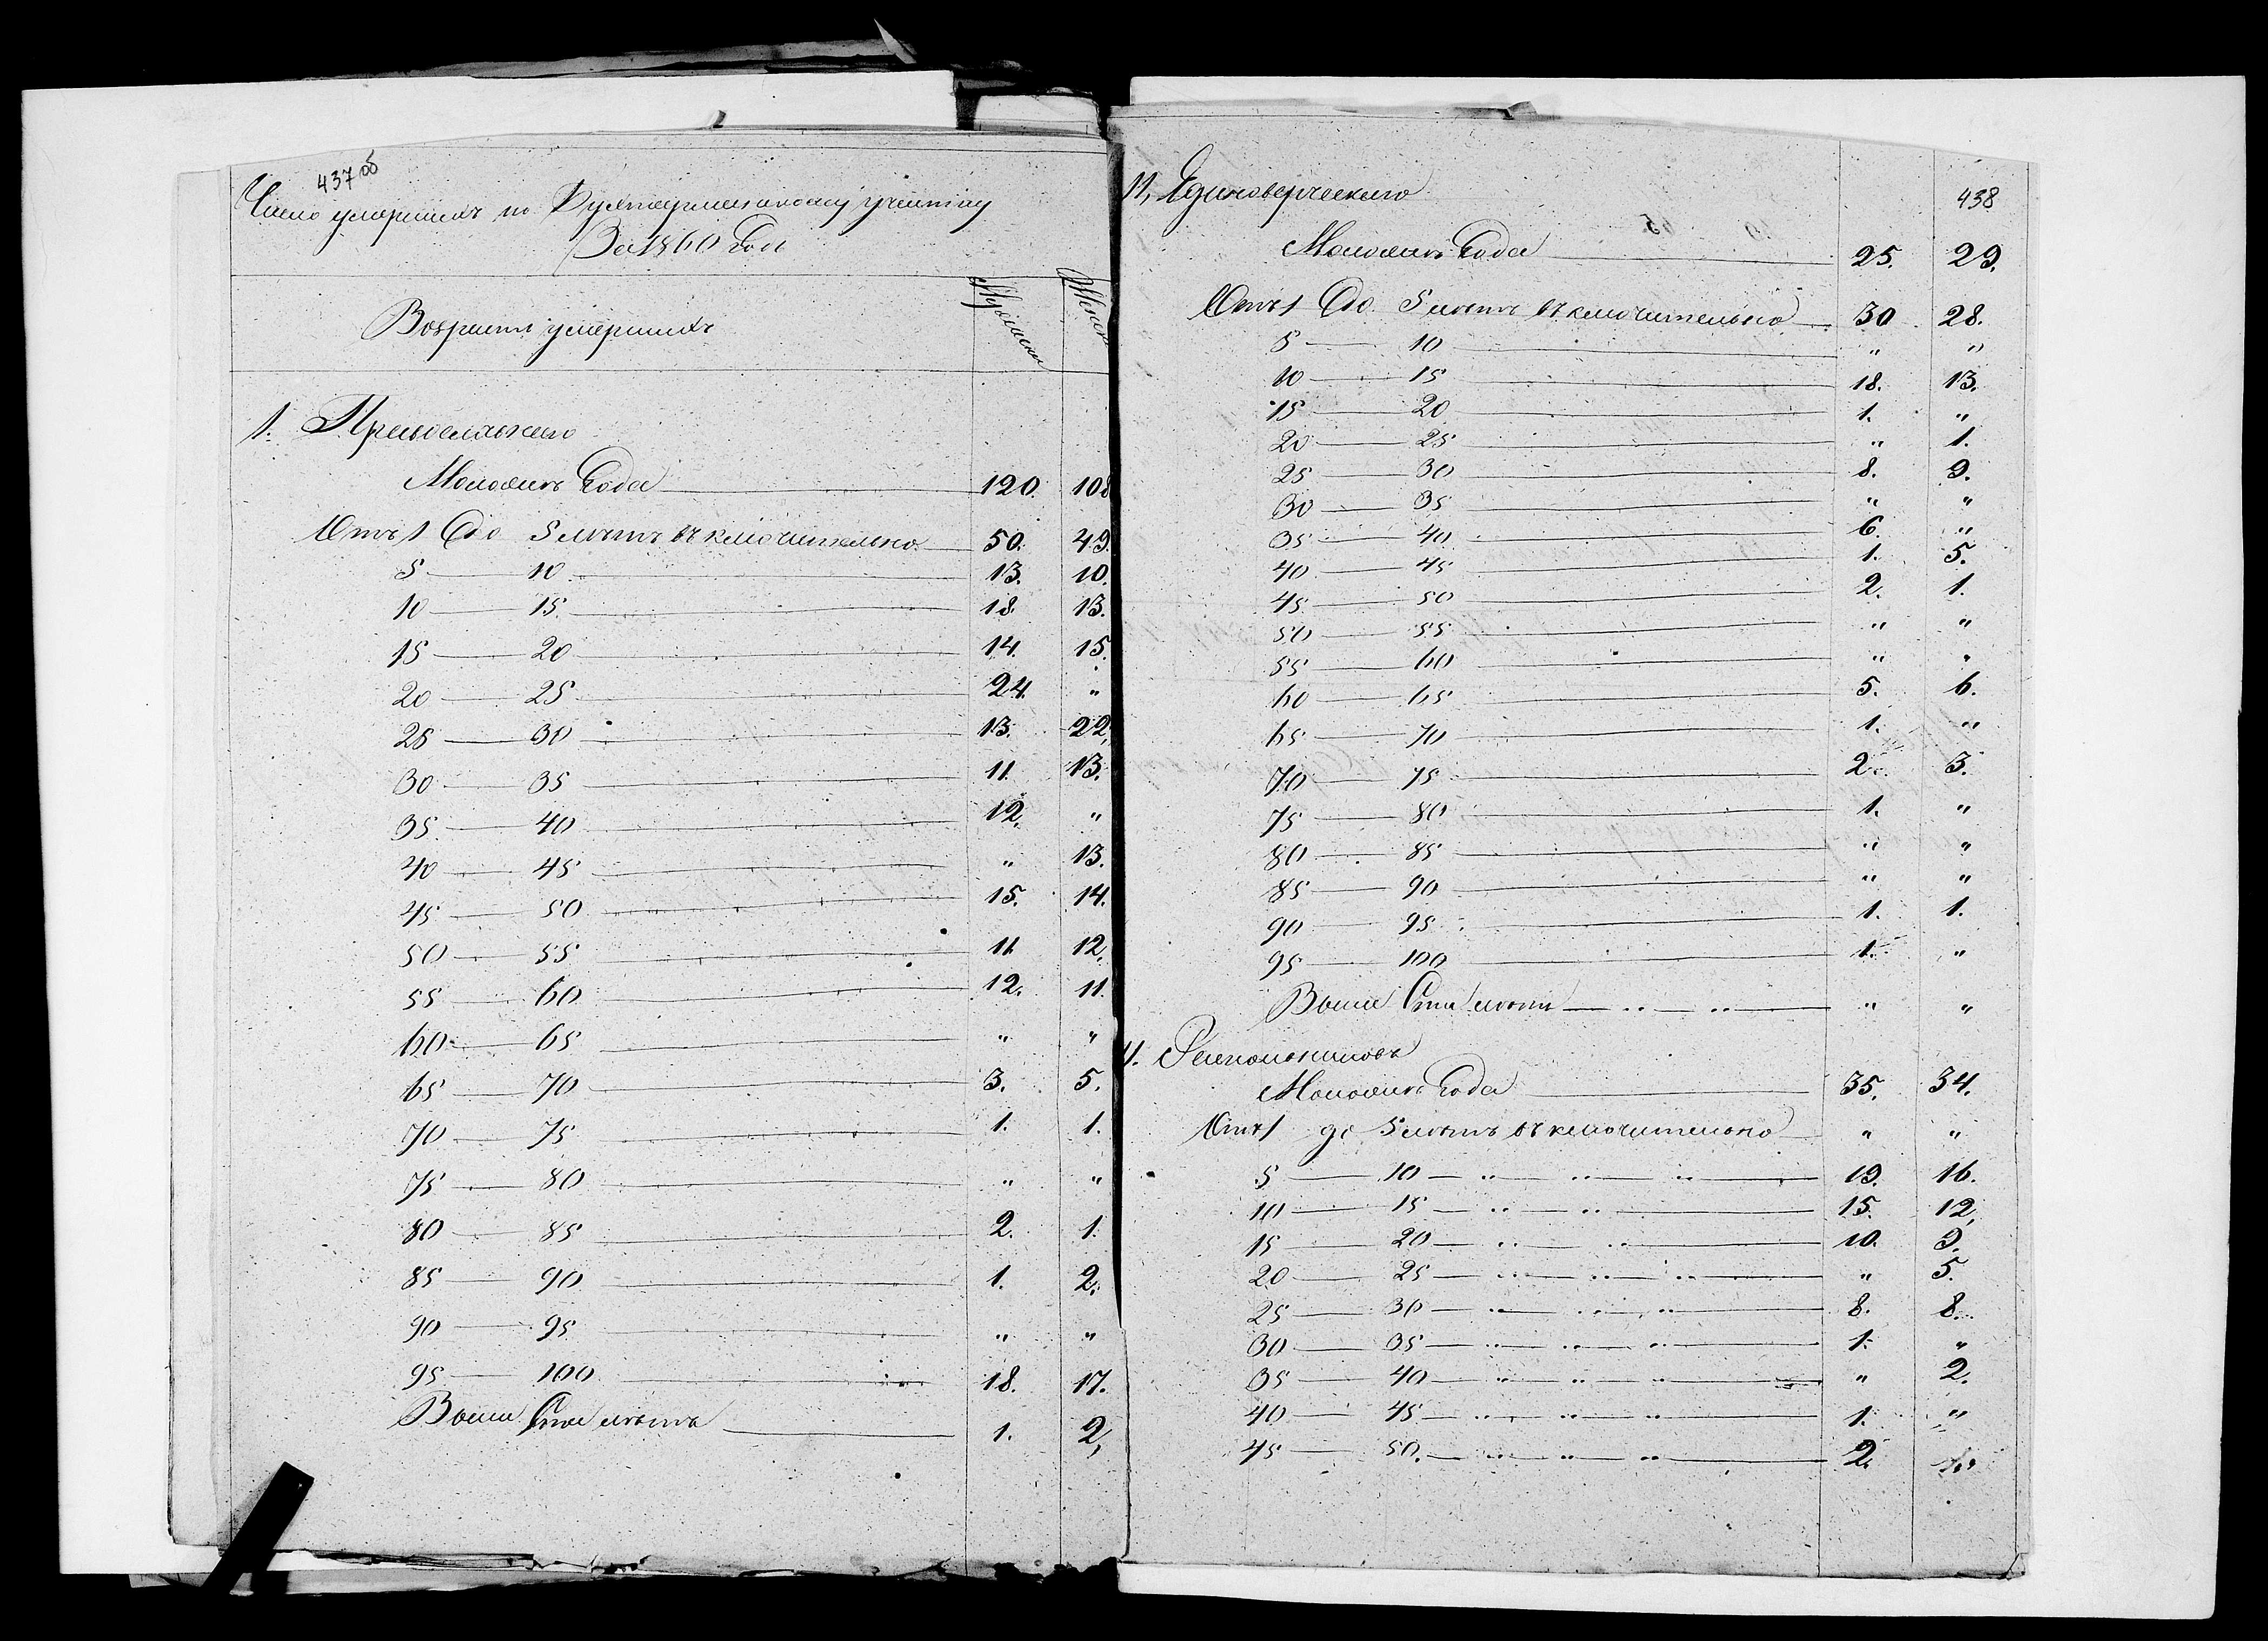 437 об
Число умершихъ по Бухтарминскому участку
За 1860 Годъ
Возрастъ умершихъ Мужеска Женск
1. Православнаго
Моложе Года 120. 108
Отъ 1 До 5 лѣтъ включительно 50. 49.
5 — 10 13. 10.
10 — 15 18. 13.
15 — 20 14. 15.
20 — 25 24. "
25 — 30 13. 22,
30 — 35 11. 13.
35 — 40 12. "
40 — 45 " 13.
45 — 50 15. 14.
50 — 55 11. 12.
55 — 60 12. 11.
60 — 65 " "
65 — 70 3. 5.
70 — 75 1. 1.
75 — 80 " "
80 — 85 2. 1.
85 — 90 1. 2.
90 — 95 " "
95 — 100 18. 17.
Выше Ста лѣтъ 1. 2,
438
11, Единоверческаго
Моложе Года 25. 29.
Отъ 1 До 5 лѣтъ включительно 30 28.
5 — 10 " "
10 — 15 18. 13.
15 — 20 1. "
20 — 25 " 1.
25 — 30 8. 9.
30 — 35 " "
35 — 40 6. "
40 — 45 1. 5.
45 — 50 2. 1.
50 — 55 " "
55 — 60 " "
60 — 65 5. 6.
65 — 70 1. "
70 — 75 2. 3.
75 — 80 1. "
80 — 85 " "
85 — 90 " "
90 — 95 1. 1.
95 — 100 1. "
Выше Ста лѣтъ " "
Раскольниковъ
Моложе Года 35. 34.
Отъ 1 до 5 лѣтъ включительно " "
5 — 10 19. 16.
10 — 15 15. 12.
15 — 20 10. 9.
20 — 25 " 5.
25 — 30 8. 8.
30 — 35 1. "
35 — 40 " 2.
40 — 45 1. "
45 — 50. 2.